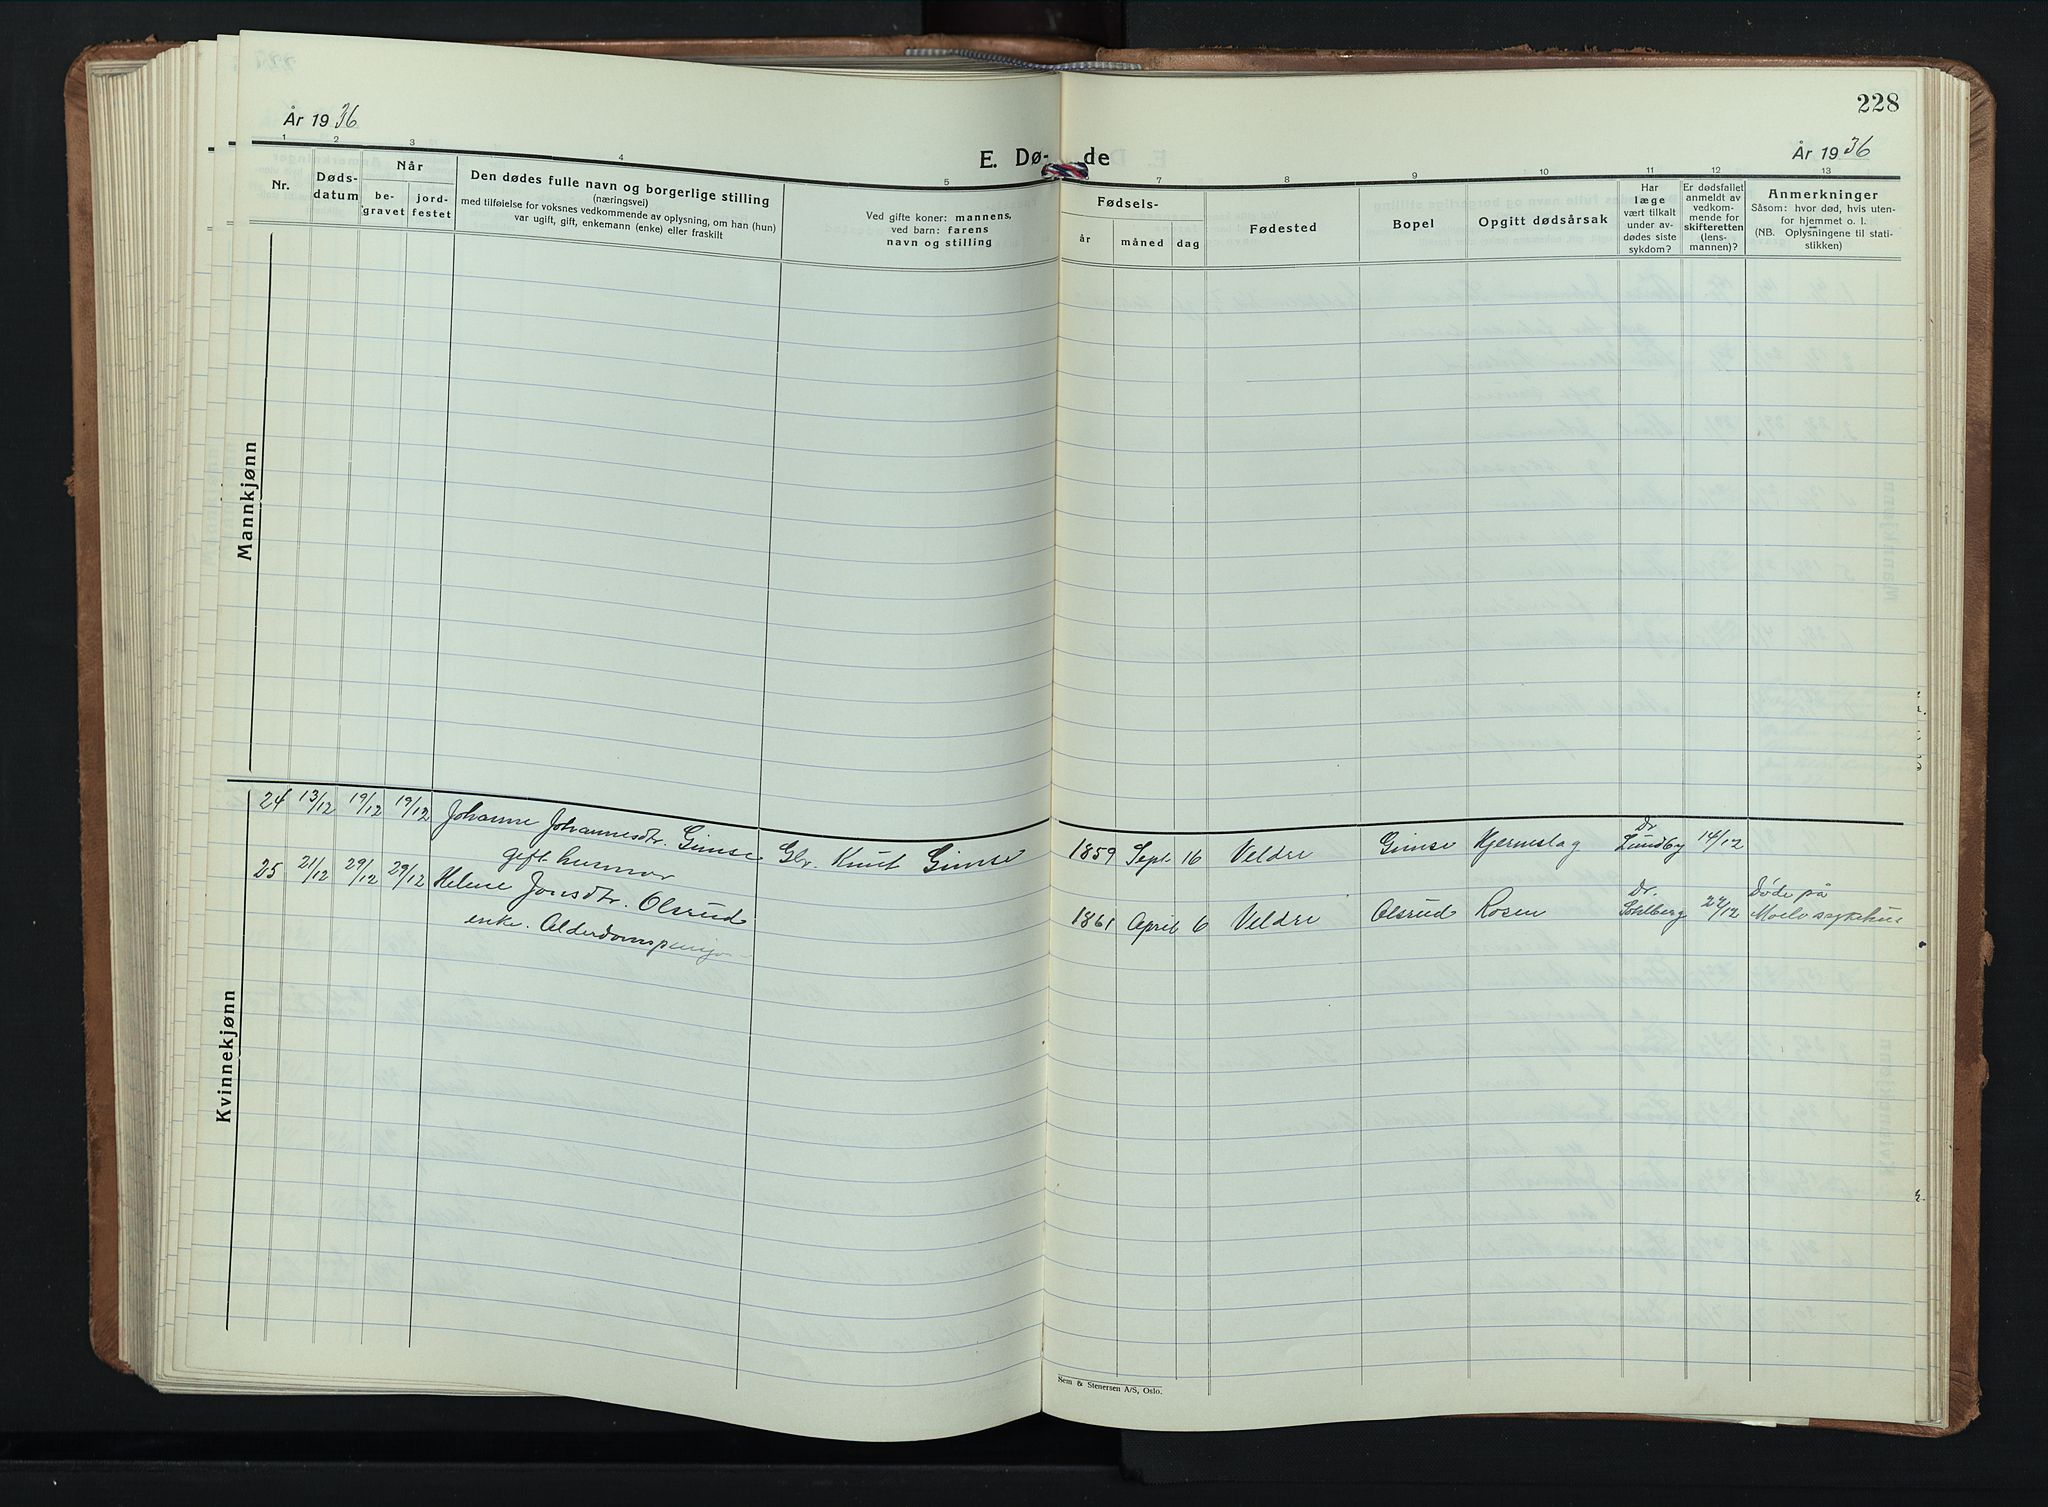 År 1936
228
År 1936
E. Dø- de
1 2 3 4 5 7 8 9 10 11 12 13
Nr.
Døds-
datum
Når
be-
gravet
jord-
festet
Den dødes fulle navn og borgerlige stilling
(næringsvei)
med tilføielse for voksnes vedkommende av oplysning, om han (hun)
var ugift, gift, enkemann (enke) eller fraskilt
Ved gifte koner: mannens,
ved barn: farens
navn og stilling
Fødsels-
år
måned
dag
Fødested
Bopel
Opgitt dødsårsak
Har
læge
vært tilkalt
under av-
dødes siste
sykdom?
Er dødsfallet
anmeldt av
vedkom-
mende for
skifteretten
(lens-
mannen)?
Anmerkninger
Såsom: hvor død, hvis uten-
for hjemmet o. l.
(NB. Oplysningene til stati-
stikken)
Mannkjønn
Kvinnekjønn
24 13/12 19/12 19/12 Johanne Johannesdtr. Gimse Gbr. Knut Gimse 1859 Sept. 16 Veldre Gimse Hjerneslag Dr. Lundby 14/12
gift husmor
25 21/12 29/12 29/12 Helene Jonsdtr. Olsrud 1861 April 6 Veldre Olsrud Rosen Dr. Sohlberg 22/12 Døde på
enke. Alderdomspensjon Moelv sykehus
Sem & Stenersen A/S, Oslo.